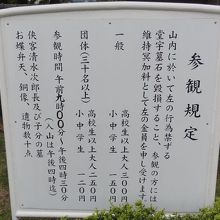 参観規定
山内に於いて左の行為禁ずる
堂宇墓石を毀損すること、参観の方には
維持冥加料として左の金員を申し受けます。
一般
高校生以上大人三〇〇円
小中学生 一五〇円
団体(三十名以上)
高校生以上大人二五〇円
小中学生 一〇〇円
参観時間午前九時〇〇分〜午後四時三〇分
(入山は午後四時迄)
侠客清水次郎長及び子分の墓
お蝶弁天、銅像、遺物数十点